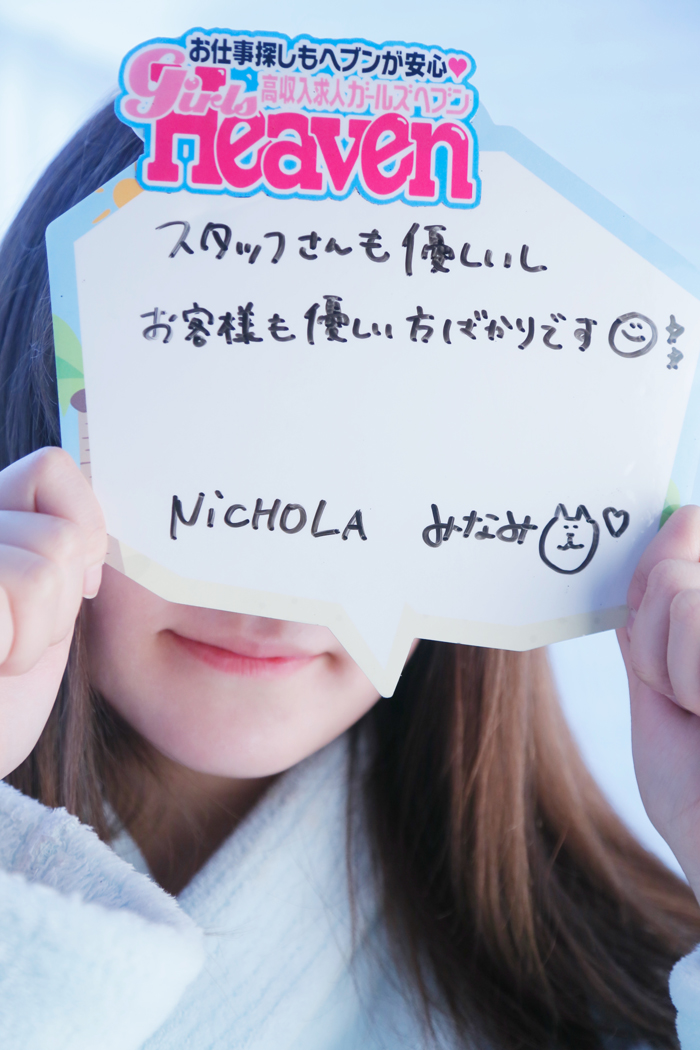 お仕事探しもヘブンが安心♥
Girl's 高収入求人ガールズヘブン
Heaven
スタッフさんも優しいし
お客様も優しい方ばかりです
NiCHOLA みなみ♡